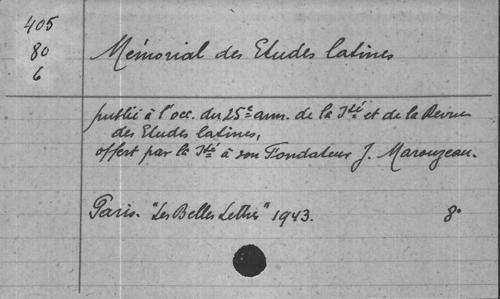 405
80
6
Mémorial des Etudes latines
publié à l'occ. du 25e ann. de la Sté et de la Revue
des Etudes latines,
offert par la Sté à son Fondateur J. Marouzeau.
Paris. "Les Belles Lettres" 1943. 8°